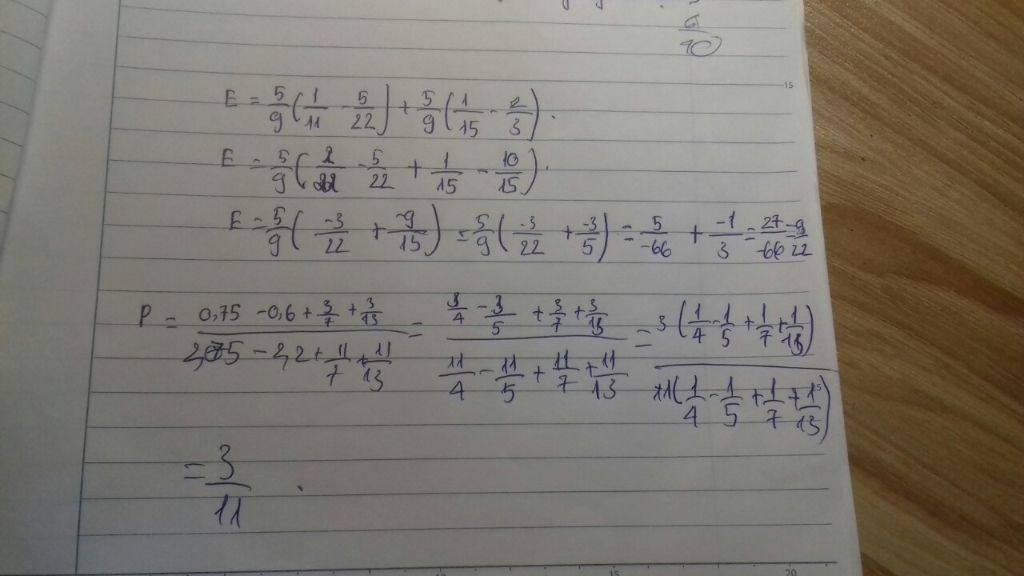 6/10
15
E = 5/9 (1/11 - 5/22) + 5/9 (1/15 - 2/3).
E = 5/9 (2/22 - 5/22 + 1/15 - 10/15).
E = 5/9 ( -3/22 + -9/15 ) = 5/9 ( -3/22 + -3/5 ) = 5/-66 + -1/3 = 27/-66 = -9/22
P = (0,75 - 0,6 + 3/7 + 3/13)/(2,75 - 2,2 + 11/7 + 11/13) = (3/4 - 3/5 + 3/7 + 3/13)/(11/4 - 11/5 + 11/7 + 11/13) = 3(1/4 - 1/5 + 1/7 + 1/13)/11(1/4 - 1/5 + 1/7 + 1/13)
= 3/11.
15 20